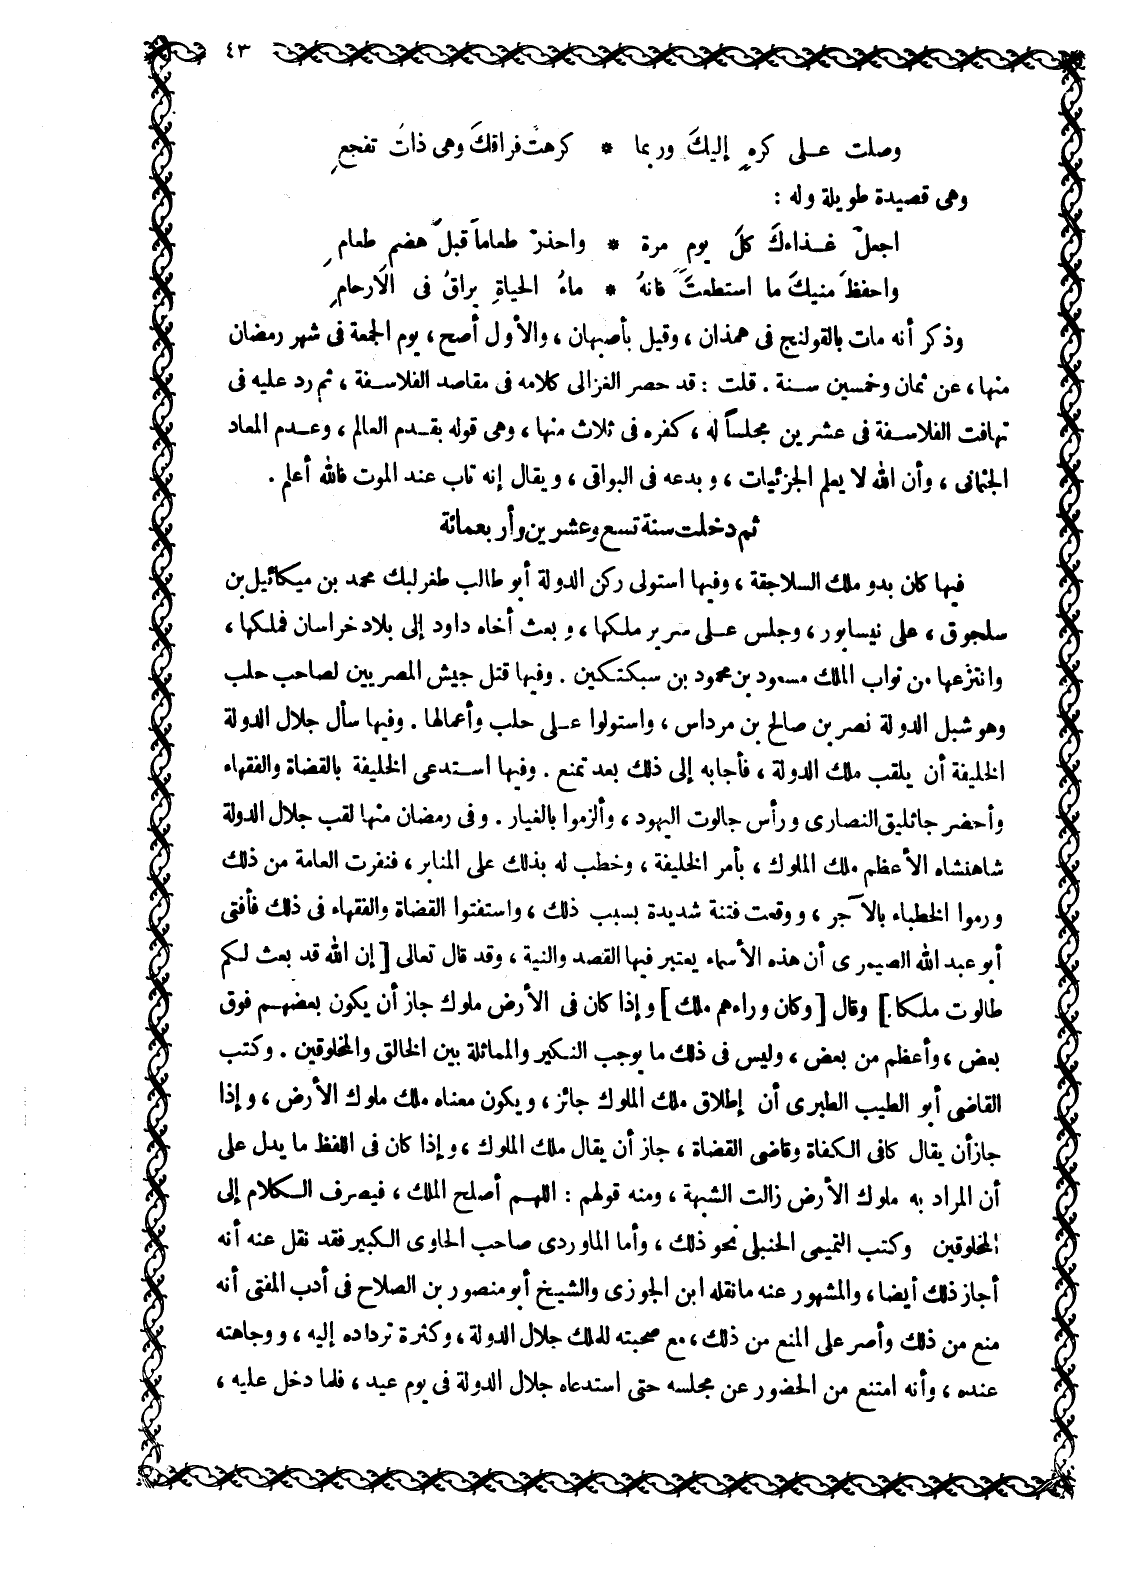 ٤٣
وصلت على كرهٍ إليكَ وربما * كرهتْ فراقكَ وهى ذاتُ تفجعِ
وهى قصيدة طويلة وله :
اجعلْ غذاءكَ كلَّ يومٍ مرة * واحذرْ طعاماً قبلَ هضمِ طعامِ
واحفظْ منيكَ ما استطعتَ فانهُ * ماءُ الحياةِ يراقُ فى الأرحامِ
وذكر أنه مات بالقولنج فى همذان ، وقيل بأصبهان ، والأول أصح ، يوم الجمعة فى شهر رمضان
منها ، عن ثمان وخمسين سنة . قلت : قد حصر الغزالى كلامه فى مقاصد الفلاسفة ، ثم رد عليه فى
تهافت الفلاسفة فى عشرين مجلساً له ، كفره فى ثلاث منها ، وهى قوله بقدم العالم ، وعدم المعاد
الجثمانى ، وأن الله لا يعلم الجزئيات ، وبدعه فى البواقى ، ويقال إنه تاب عند الموت فالله أعلم .
ثم دخلت سنة تسع وعشرين وأربعمائة
فيها كان بدو ملك السلاجقة ، وفيها استولى ركن الدولة أبو طالب طغرلبك محمد بن ميكائيل بن
سلجوق ، على نيسابور ، وجلس على سرير ملكها ، وبعث أخاه داود إلى بلاد خراسان فملكها ،
وانتزعها من نواب الملك مسعود بن محمود بن سبكتكين . وفيها قتل جيش المصريين لصاحب حلب
وهو شبل الدولة نصر بن صالح بن مرداس ، واستولوا على حلب وأعمالها . وفيها سأل جلال الدولة
الخليفة أن يلقب ملك الدولة ، فأجابه إلى ذلك بعد تمنع . وفيها استدعى الخليفة بالقضاة والفقهاء
وأحضر جاثليق النصارى ورأس جالوت اليهود ، وألزموا بالغيار . وفى رمضان منها لقب جلال الدولة
شاهنشاه الأعظم ملك الملوك ، بأمر الخليفة ، وخطب له بذلك على المنابر ، فنفرت العامة من ذلك
ورموا الخطباء بالآجر ، ووقعت فتنة شديدة بسبب ذلك ، واستفتوا القضاة والفقهاء فى ذلك فأفتى
أبو عبد الله الصيمرى أن هذه الأسماء يعتبر فيها القصد والنية ، وقد قال تعالى [ إن الله قد بعث لكم
طالوت ملكا ] وقال [ وكان وراءهم ملك ] وإذا كان فى الأرض ملوك جاز أن يكون بعضهم فوق
بعض ، وأعظم من بعض ، وليس فى ذلك ما يوجب النكير والمماثلة بين الخالق والمخلوقين . وكتب
القاضى أبو الطيب الطبرى أن إطلاق ملك الملوك جائز ، ويكون معناه ملك ملوك الأرض ، وإذا
جاز أن يقال كافى الكفاة وقاضى القضاة ، جاز أن يقال ملك الملوك ، وإذا كان فى اللفظ ما يدل على
أن المراد به ملوك الأرض زالت الشبهة ، ومنه قولهم : اللهم أصلح الملك ، فيصرف الكلام إلى
المخلوقين وكتب التميمى الحنبلى نحو ذلك ، وأما الماوردى صاحب الحاوى الكبير فقد نقل عنه أنه
أجاز ذلك أيضا ، والمشهور عنه مانقله ابن الجوزى والشيخ أبو منصور بن الصلاح فى أدب المفتى أنه
منع من ذلك وأصر على المنع من ذلك ، مع صحبته للملك جلال الدولة ، وكثرة ترداده إليه ، ووجاهته
عنده ، وأنه امتنع من الحضور عن مجلسه حتى استدعاه جلال الدولة فى يوم عيد ، فلما دخل عليه ،